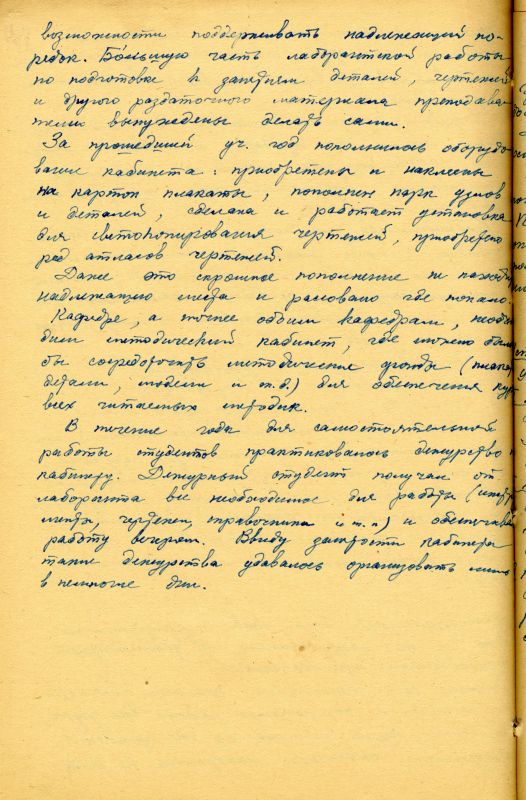 возможности поддерживать надлежащий по-
рядок. Большую часть лаборантской работы
по подготовке к занятиям деталей, чертежей
и другого раздаточного материала преподава-
тели вынуждены делать сами.
За прошедший уч. год пополнилось оборудо-
вание кабинета: приобретены и наклеены
на картон плакаты, пополнен парк узлов
и деталей, сделана и работает установка
для светокопирования чертежей, приобретено
ряд атласов чертежей.
Даже это скромное пополнение не находит
надлежащего места и рассовано где попало.
Кафедре, а точнее обоим кафедрам, необхо-
дим методический кабинет, где можно было
бы сосредоточить методические фонды (плакаты
детали, модели и т.д.) для обеспечения
всех читаемых методик.
В течение года для самостоятельной
работы студентов практиковалось дежурство
кабинету. Дежурный студент получал от
лаборанта все необходимое для работы (инстру
менты, чертежи, справочники и т.п.) и обеспечивал
работу вечером. Ввиду занятости кабинета
такие дежурства удавалось организовать лишь
в немногие дни.